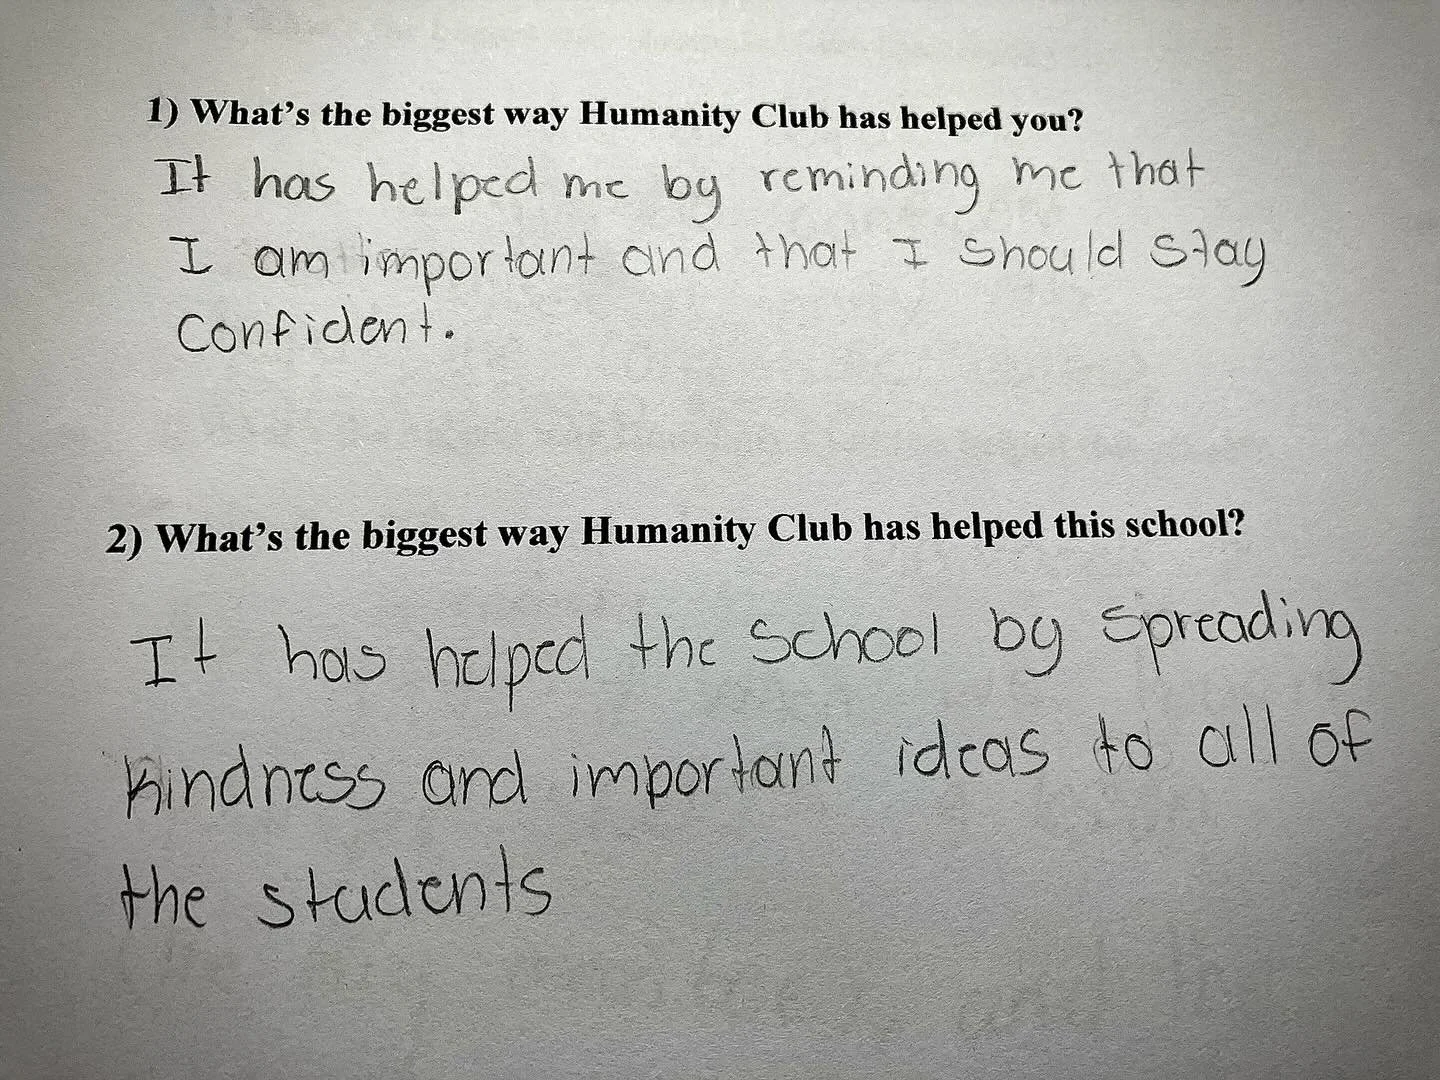 1) What's the biggest way Humanity Club has helped you?
It has helped me by reminding me that
I am important and that I should stay
Confident.
2) What's the biggest way Humanity Club has helped this school?
It has helped the School by spreading
kindness and important ideas to all of
the students